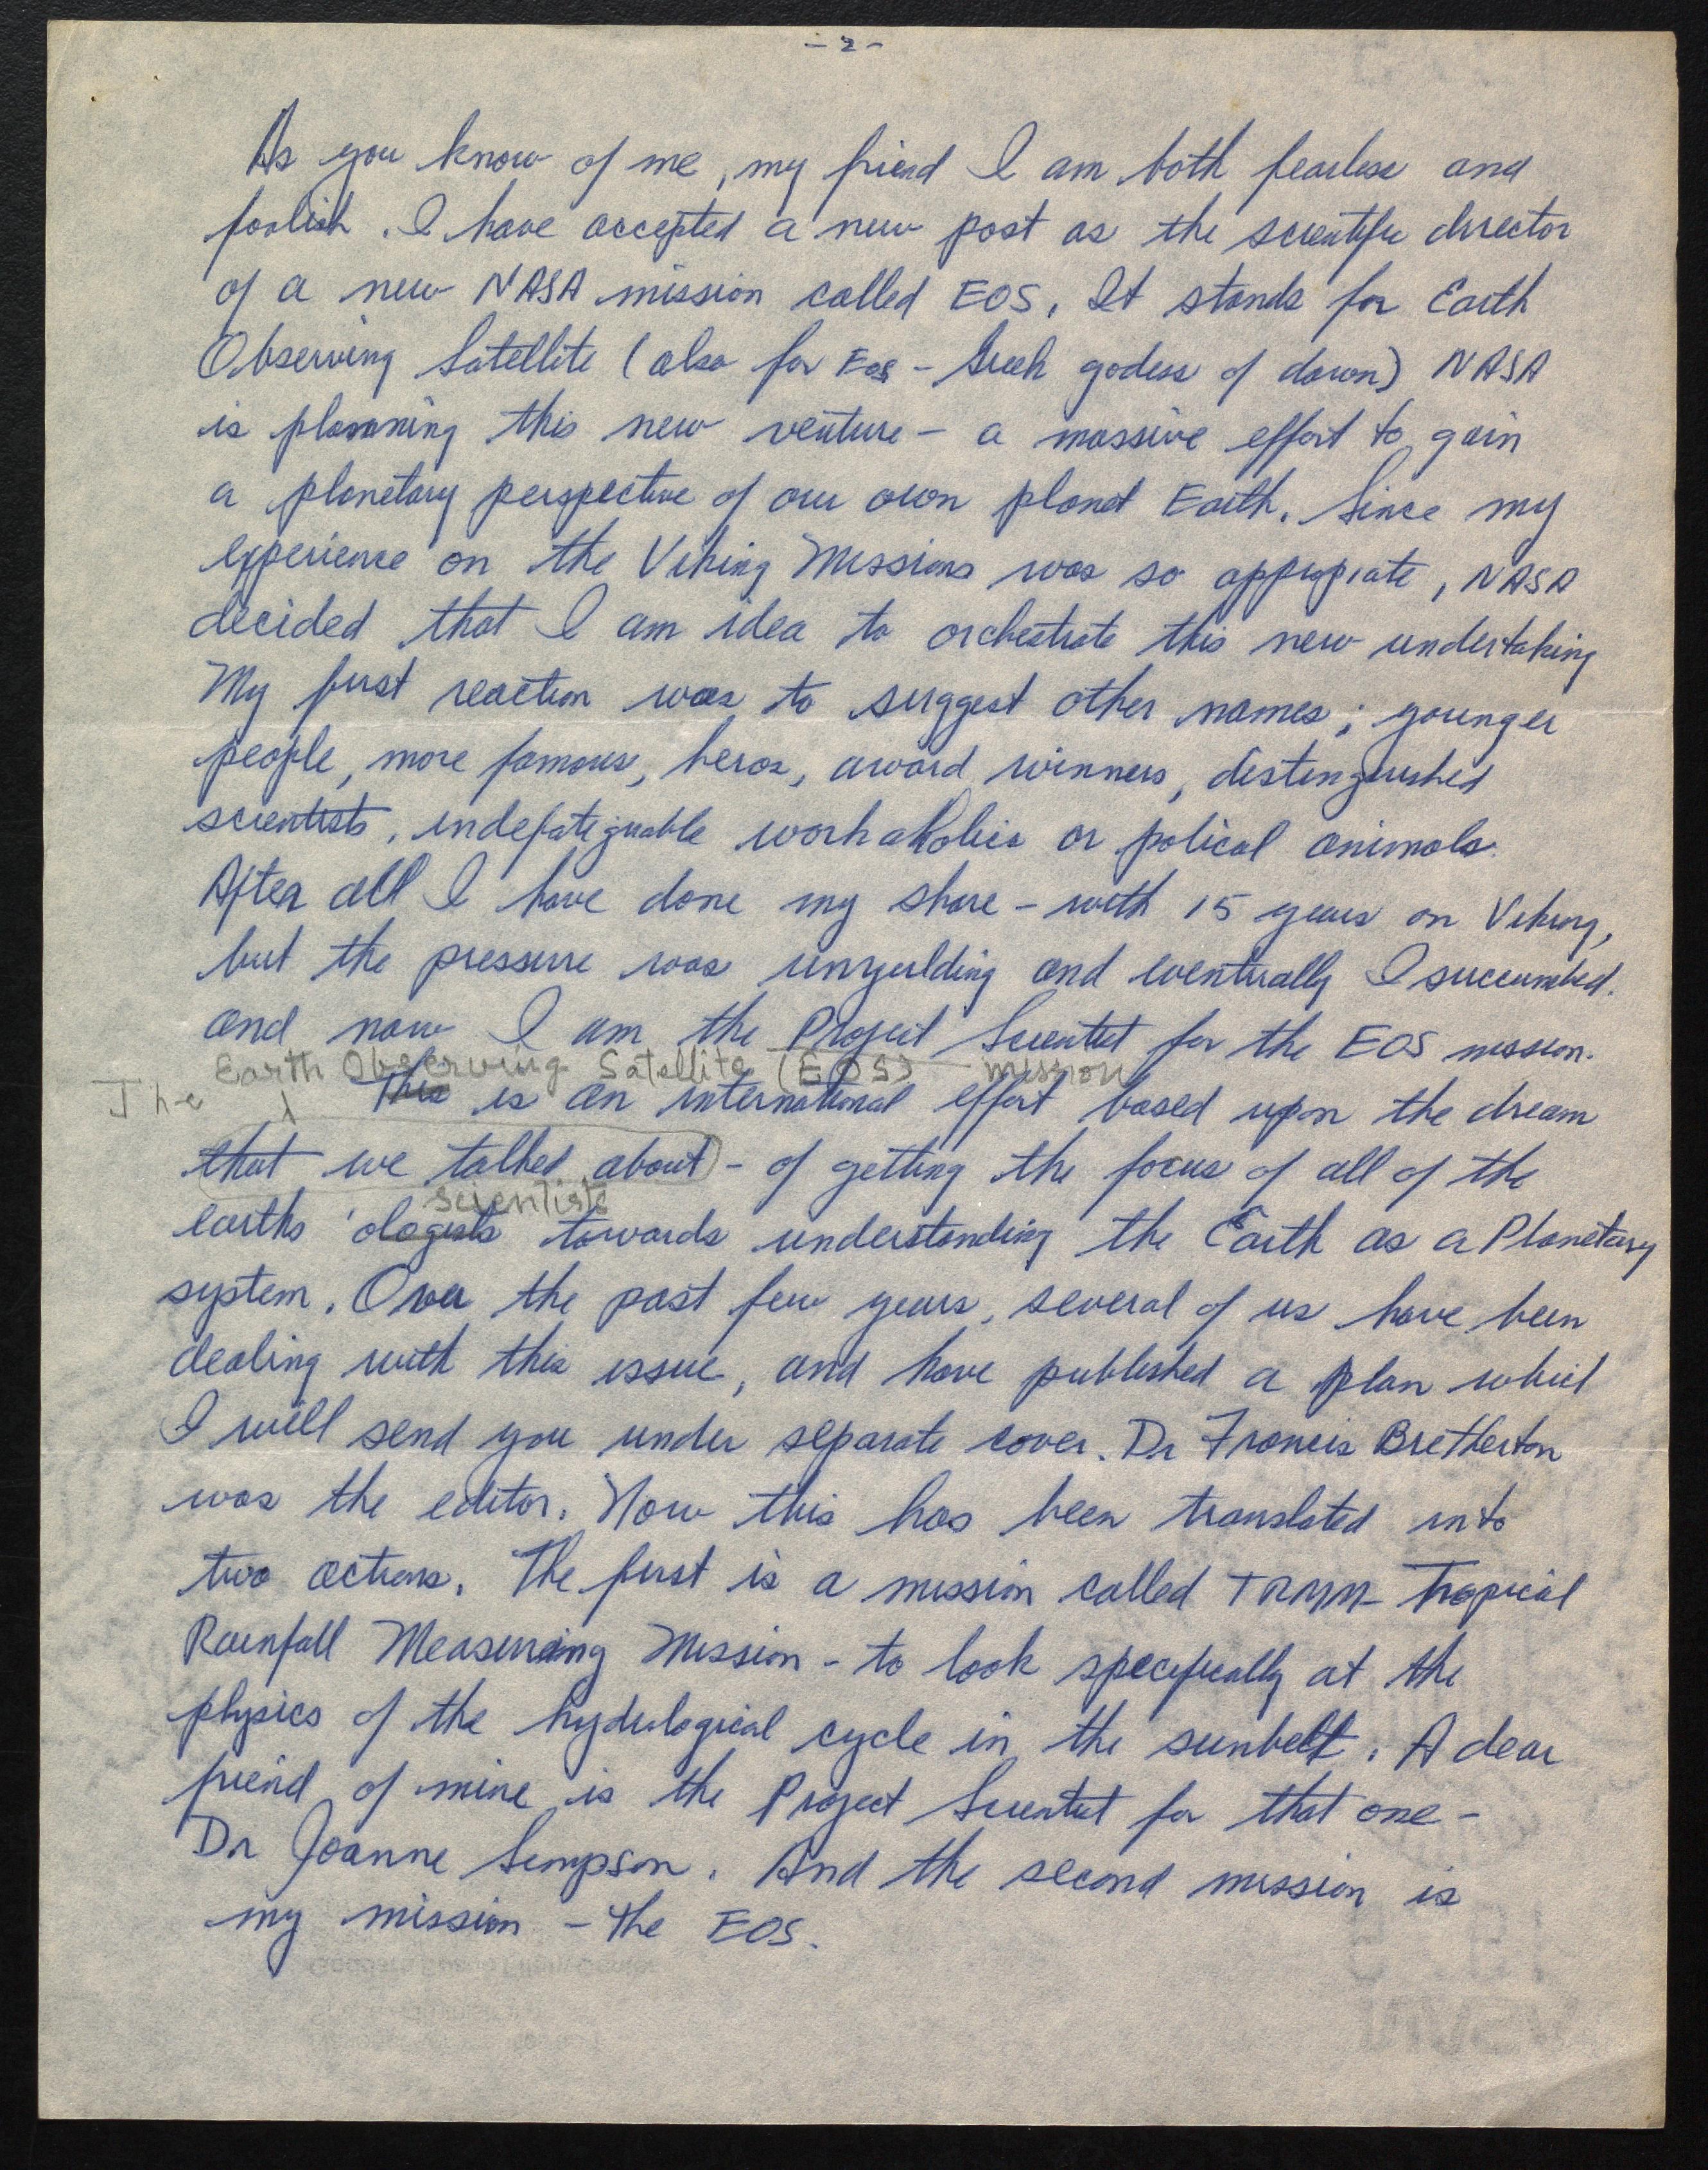 - 2 -
As you know of me, my friend I am both fearless and
foolish. I have accepted a new post as the scientific director
of a new NASA mission called EOS, It stands for Earth
Observing Satellite (also for Eos - Greek godess of dawn) NASA
is planning this new venture - a massive effort to gain
a planetary perspective of our own planet Earth. Since my
experience on the Viking Missions was so appropiate, NASA
decided that I am idea to orchestrate this new undertaking
My first reaction was to suggest other names; younger
people, more famous, heros, award winners, distinguished
scientists, indefatiguable workaholics or polical animals.
After all I have done my share - with 15 years on Viking,
but the pressure was unyeilding and eventually I succumbed.
and now I am the Project Scientist for the EOS mission.
Earth Observing Satellite (EOS) mission
The This is an international effort based upon the dream
that we talked about - of getting the focus of all of the
scientists
earths 'ologists towards understanding the Earth as a Planetary
system. Over the past few years, several of us have been
dealing with this issue, and have published a plan which
I will send you under separate cover. Dr Francis Bretherton
was the editor. Now this has been translated into
two actions. The first is a mission called TRMM - Tropical
Rainfall Measuring Mission - to look specifically at the
physics of the hydrological cycle in the sunbelt. A dear
friend of mine is the Project Scientist for that one -
Dr Joanne Simpson. And the second mission is
my mission - the EOS.